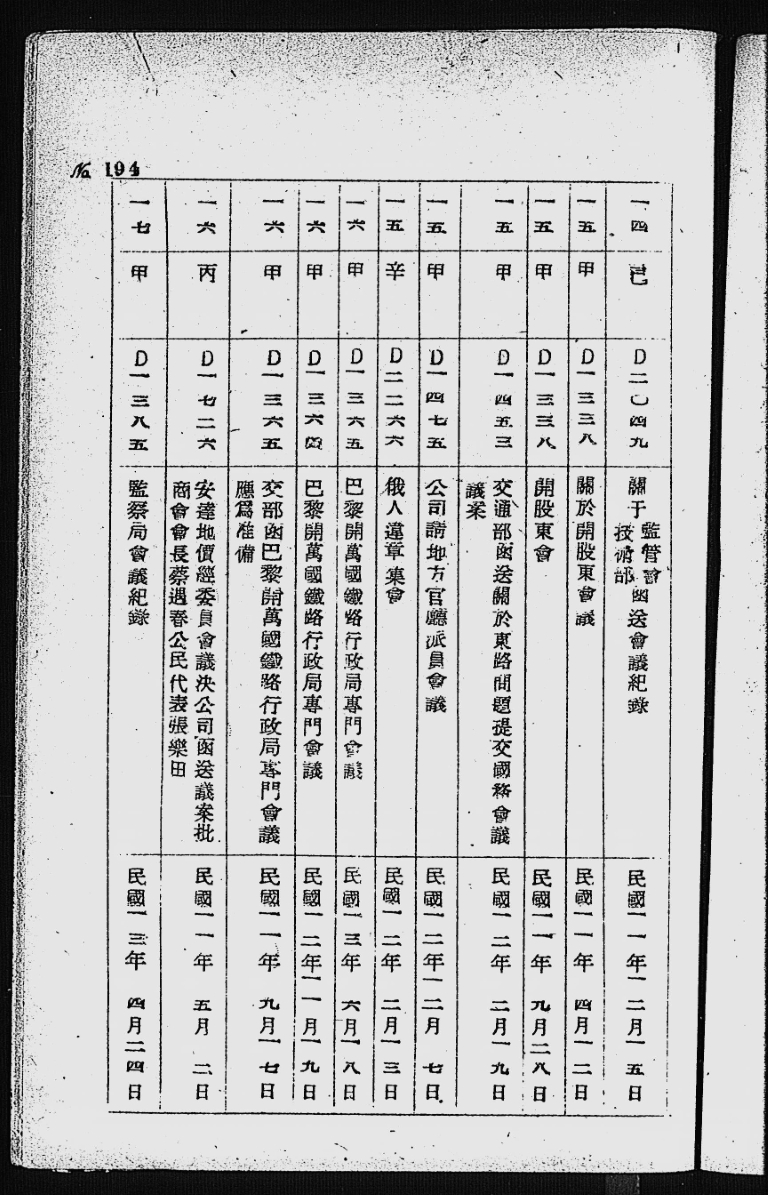 No. 194
一四 己 D二〇四九 關于監管會技術部函送會議紀錄 民國一一年一二月一五日
一五 甲 D一三三八 關於開股東會議 民國一一年四月一二日
一五 甲 D一三三八 開股東會 民國一一年九月二八日
一五 甲 D一四五三 交通部函送關於東路問題提交國務會議
議案 民國一二年二月一九日
一五 甲 D一四七五 公司請地方官廳派員會議 民國一二年一二月七日
一五 辛 D二二六六 俄人違章集會 民國一二年二月一三日
一六 甲 D一三六五 巴黎開萬國鐵路行政局專門會議 民國一三年六月一八日
一六 甲 D一三六四 巴黎開萬國鐵路行政局專門會議 民國一二年一一月一九日
一六 甲 D一三六五 交部函巴黎開萬國鐵路行政局專門會議
應爲准備 民國一一年九月一七日
一六 丙 D一七二六 安達地價經委員會議決公司函送議案批
商會會長蔡遇春公民代表張樂田 民國一一年五月二日
一七 甲 D一三八五 監察局會議紀錄 民國一三年四月二四日